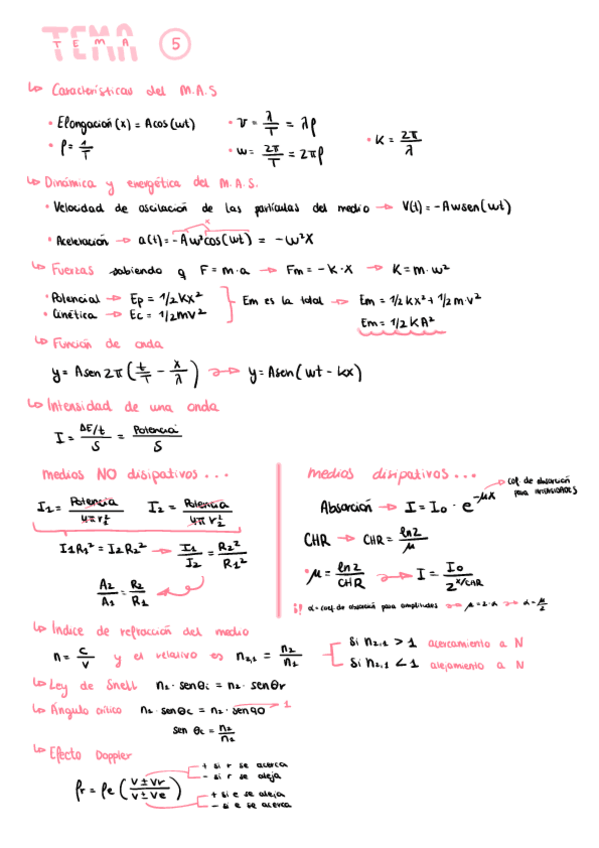 TEMA
TEMA 5
↳ Características del M.A.S
• Elongación (x) = A cos (wt)
• v = λ/T = λf
• K = 2π/λ
• f = 1/T
• w = 2π/T = 2πf
↳ Dinámica y energética del M.A.S.
• Velocidad de oscilación de las partículas del medio → V(t) = -Awsen(wt)
• Aceleración → a(t) = -Aw²cos(wt) = -w²X
x
↳ Fuerzas sabiendo q F = m·a → Fm = -K·X → K = m·w²
• Potencial → Ep = 1/2 Kx²
• Cinética → Ec = 1/2mv²
Em es la total → Em = 1/2 kx² + 1/2 m·v²
Em = 1/2 KA²
↳ Función de onda
y = Asen 2π (t/T - x/λ) → y = Asen (wt - kx)
↳ Intensidad de una onda
I = ΔE/t / S = Potencia / S
medios NO disipativos...
I1 = Potencia / 4πr1² I2 = Potencia / 4πr2²
I1R1² = I2R2² → I1/I2 = R2²/R1²
A2/A1 = R2/R1
medios disipativos...
Absorción → I = I0 · e^-μx
→ cof de absorción para intensidades
CHR → CHR = ln2/μ
• μ = ln2/CHR → I = I0 / 2^x/CHR
¡! α = coef. de absorción para amplitudes → μ = 2·α → α = μ/2
↳ Índice de refracción del medio
n = c/v y el relativo es n2,1 = n2/n1
Si n2,1 > 1 acercamiento a N
Si n2,1 < 1 alejamiento a N
↳ Ley de Snell n1 · senθi = n2 · senθr
↳ Ángulo crítico n1 · senθc = n2 · sen90 → 1
sen θc = n2/n1
↳ Efecto Doppler
fr = fe (V ± Vr / V ± Ve)
+ si r se acerca
- si r se aleja
+ si e se aleja
- si e se acerca